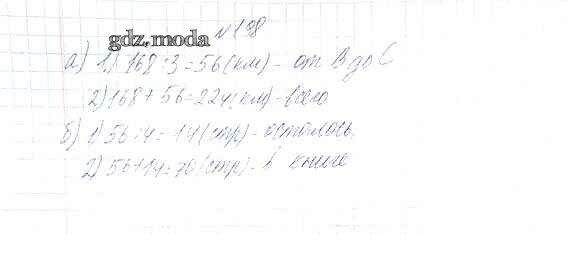 №198
gdz.moda
а) 1) 168 : 3 = 56 (км) - от В до С
2) 168 + 56 = 224 (км) - всего
б) 1) 56 : 4 = 14 (стр) - осталось.
2) 56 + 14 = 70 (стр) - в книге